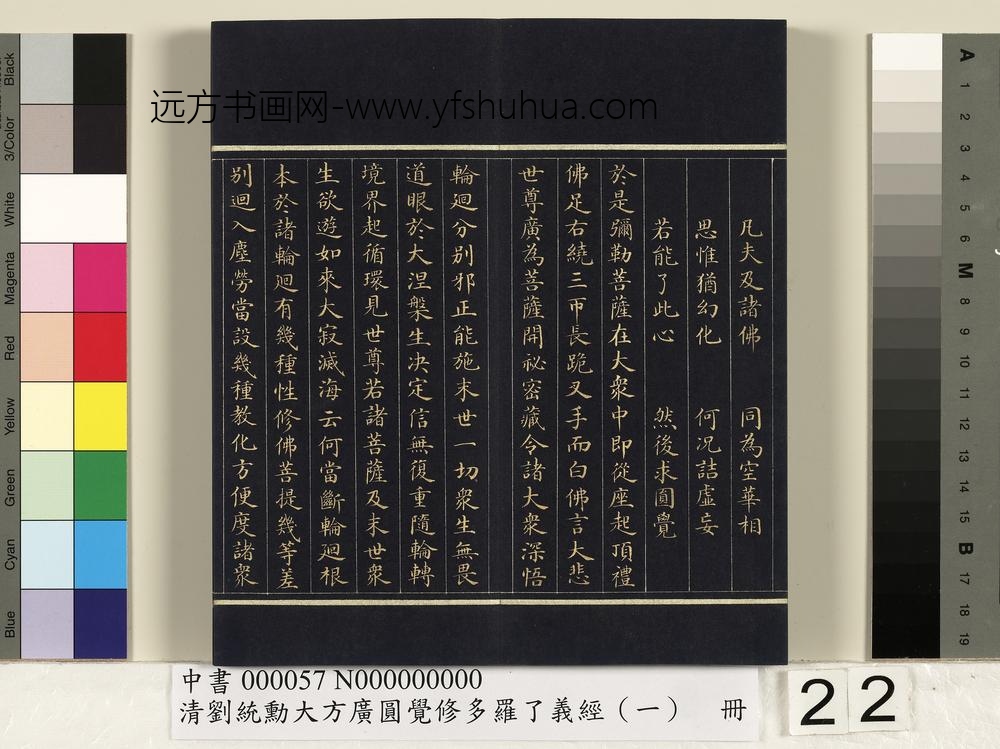 远方书画网-www.yfshuhua.com
凡夫及諸佛　同為空華相
思惟猶幻化　何況詰虛妄
若能了此心　然後求圓覺
於是彌勒菩薩在大眾中即從座起頂禮
佛足右繞三帀長跪叉手而白佛言大悲
世尊廣為菩薩開祕密藏令諸大眾深悟
輪迴分別邪正能施末世一切眾生無畏
道眼於大涅槃生決定信無復重隨輪轉
境界起循環見世尊若諸菩薩及末世眾
生欲遊如來大寂滅海云何當斷輪迴根
本於諸輪迴有幾種性修佛菩提幾等差
別迴入塵勞當設幾種教化方便度諸眾
Black
3/Color
White
Magenta
Red
Yellow
Green
Cyan
Blue
A
1
2
3
4
5
6
M
8
9
10
11
12
13
14
15
B
17
18
19
中書 000057 N000000000
清劉統勳大方廣圓覺修多羅了義經（一）　冊
22